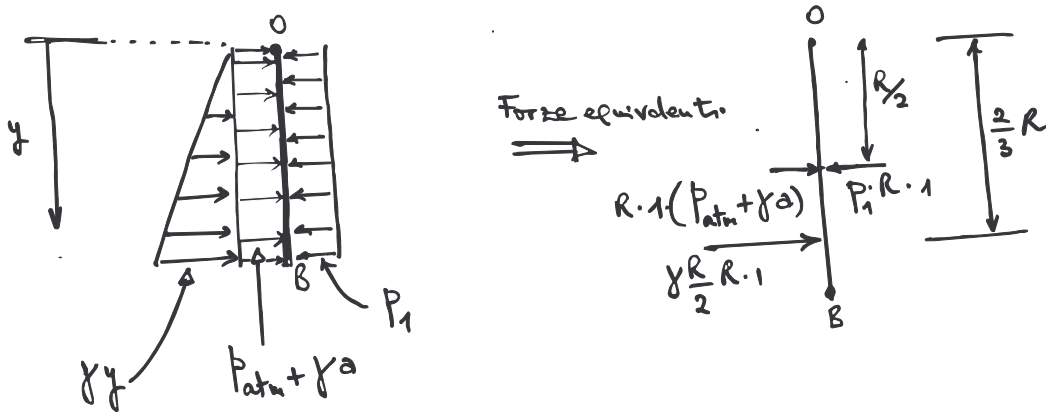 O
y
B
P₁
γy
Patm + γa
Forze equivalenti
O
R/2
2/3 R
R·1·(Patm + γa)
P₁·R·1
γ R/2 R·1
B